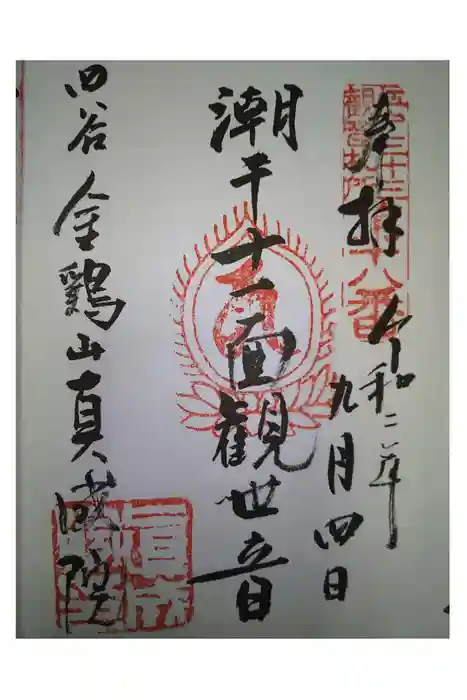 奉拝
令和二年
九月四日
潮干十一面観世音
四谷 金鶏山真成院
十八番